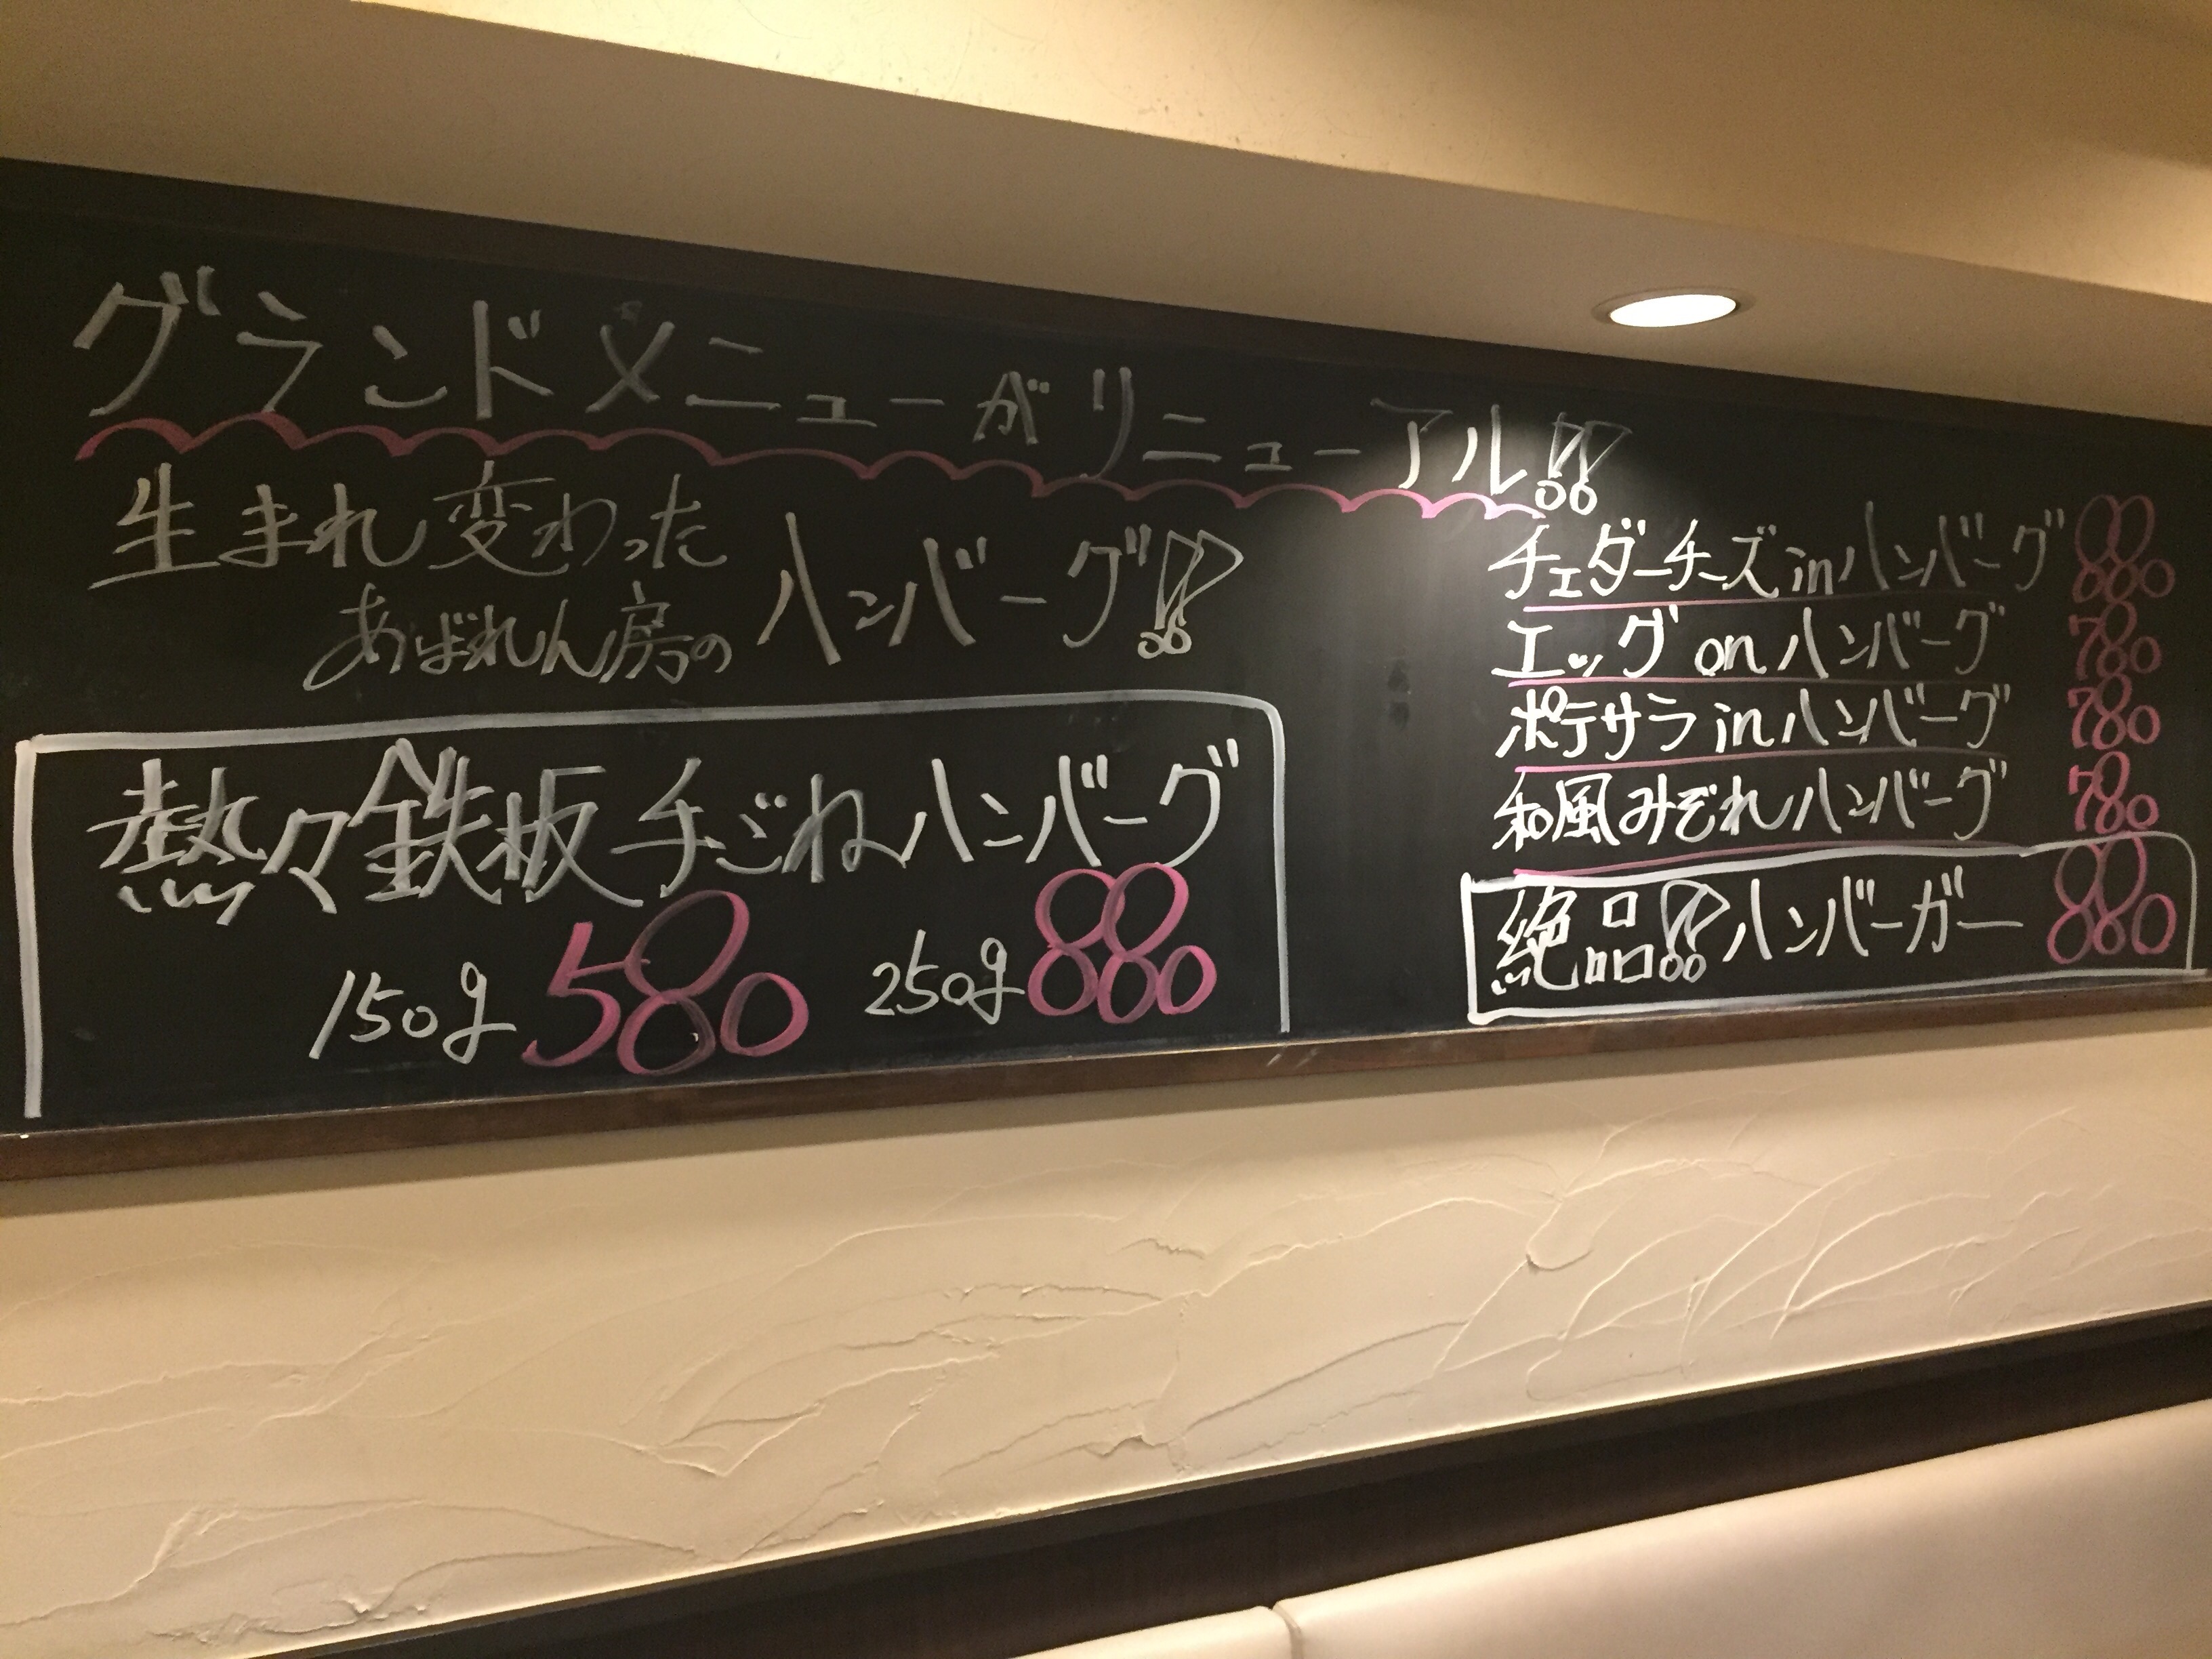 グランドメニューがリニューアル!!
生まれ変わった
あばれん房のハンバーグ!!
熱々鉄板手ごねハンバーグ
150g 580 250g 880
チェダーチーズinハンバーグ 880
エッグonハンバーグ 780
ポテサラinハンバーグ 780
和風みぞれハンバーグ 780
絶品!!ハンバーガー 880